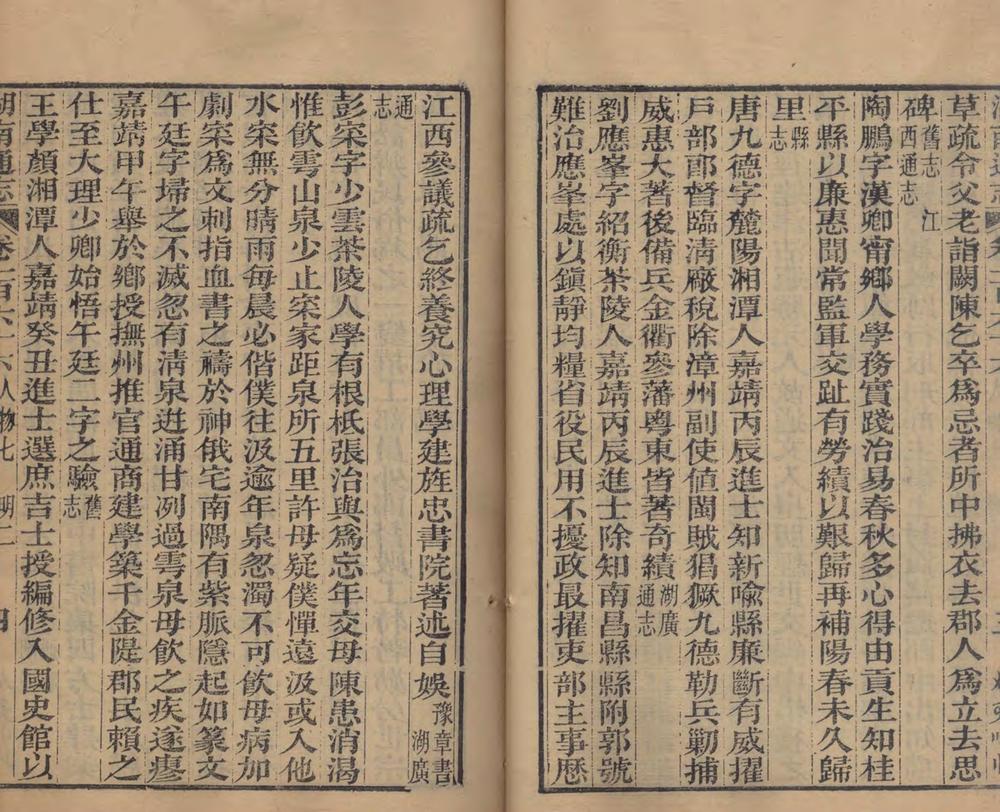 草疏令父老詣闕陳乞卒爲忌者所中拂衣去郡人爲立去思
碑舊志江西通志
陶鵬字漢卿甯鄉人學務實踐治易春秋多心得由貢生知桂
平縣以廉惠聞常監軍交趾有勞績以艱歸再補陽春未久歸
里縣志
唐九德字麓陽湘潭人嘉靖丙辰進士知新喻縣廉斷有威擢
戶部郎督臨清廠稅除漳州副使値閩賊猖獗九德勒兵勦捕
威惠大著後備兵金衢參藩粵東皆著奇績湖廣通志
劉應峯字紹衡茶陵人嘉靖丙辰進士除知南昌縣縣附郭號
難治應峯處以鎭靜均糧省役民用不擾政最擢吏部主事歷
江西參議疏乞終養究心理學建旌忠書院著述自娛豫章書湖廣
通志
彭宷字少雲茶陵人學有根柢張治與爲忘年交母陳患消渴
惟飮雲山泉少止宷家距泉所五里許母疑僕憚遠汲或入他
水宷無分晴雨每晨必偕僕往汲逾年泉忽濁不可飮母病加
劇宷爲文刺指血書之禱於神俄宅南隅有紫脈隱起如篆文
午廷字埽之不滅忽有淸泉迸涌甘冽過雲泉母飮之疾遂瘳
嘉靖甲午舉於鄉授撫州推官通商建學築千金隄郡民賴之
仕至大理少卿始悟午廷二字之驗舊志
王學顏湘潭人嘉靖癸丑進士選庶吉士授編修入國史館以
湖南通志 卷一百六十六 人物七 明二 四